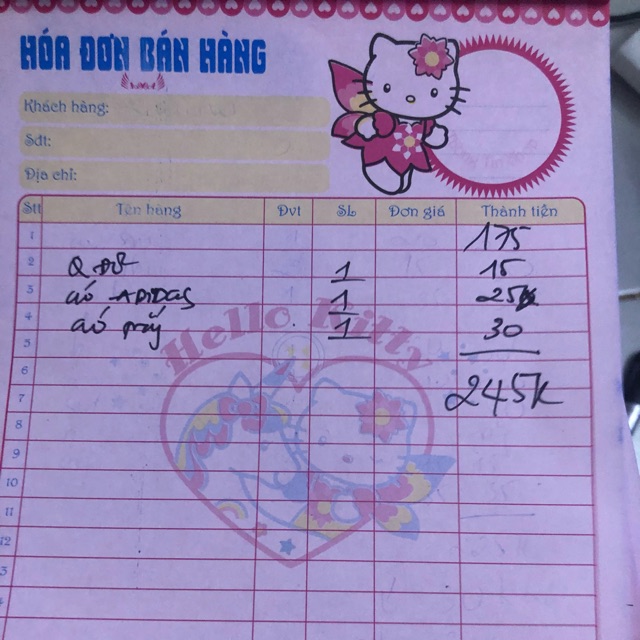 HÓA ĐƠN BÁN HÀNG
Khách hàng:
Sđt:
Địa chỉ:
Stt Tên hàng Đvt SL Đơn giá Thành tiền
1 175
2 Q 1 15
3 áo ADIDAS 1 25k
4 áo 1 30
5
6 245K
7
8
9
10
11
12
Hello Kitty